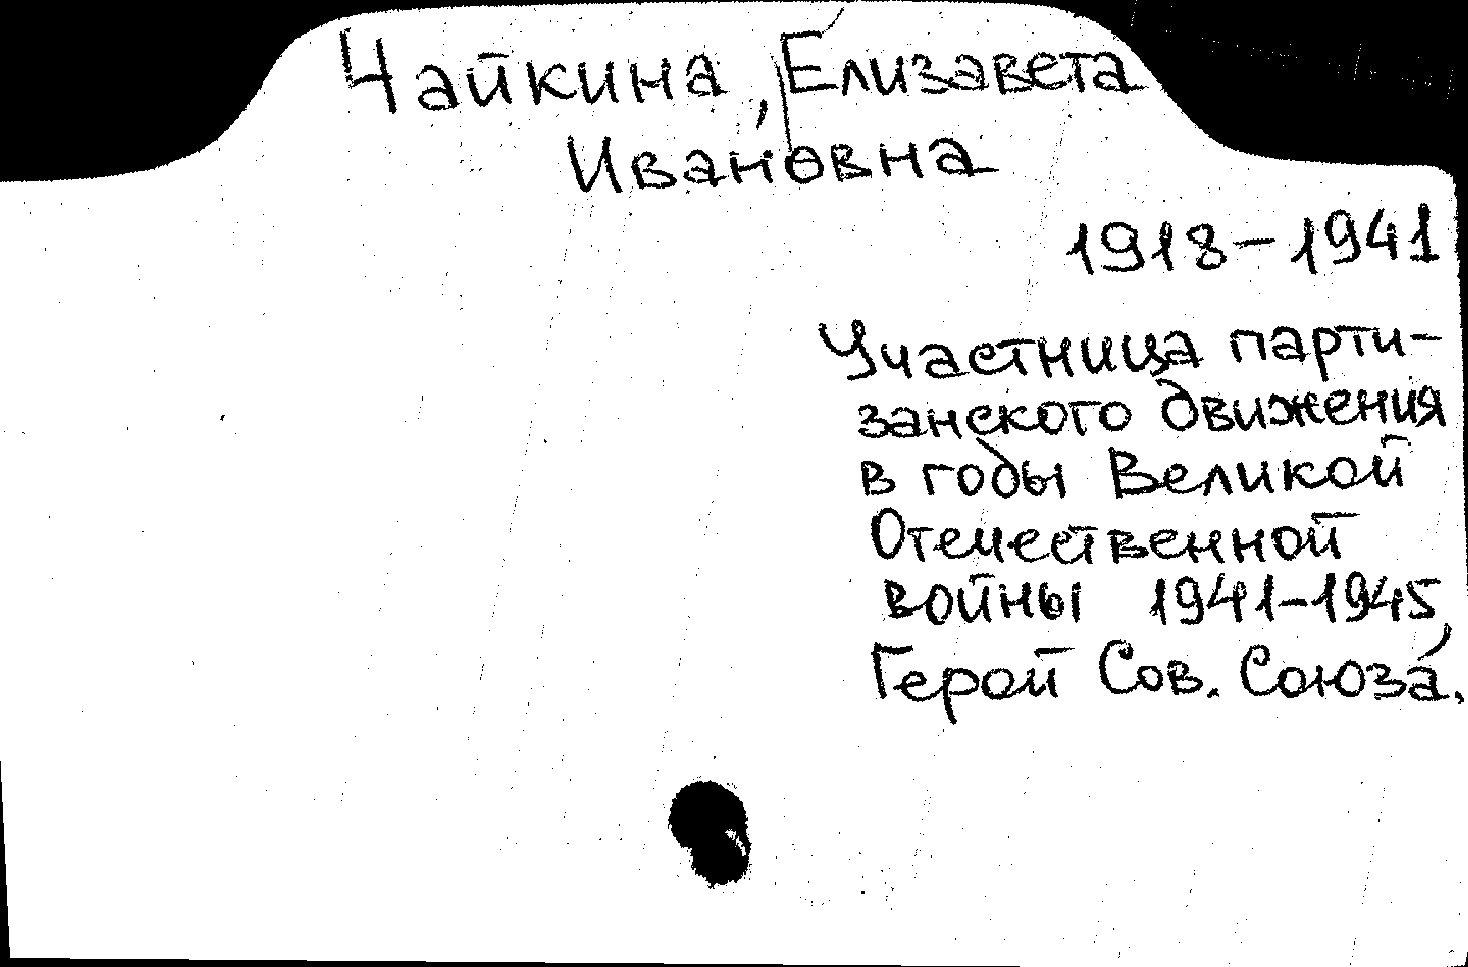 Чайкина, Елизавета
Ивановна
1918-1941
Участница парти-
занского движения
в годы Великой
Отечественной
войны 1941-1945,
Герой Сов. Союза.